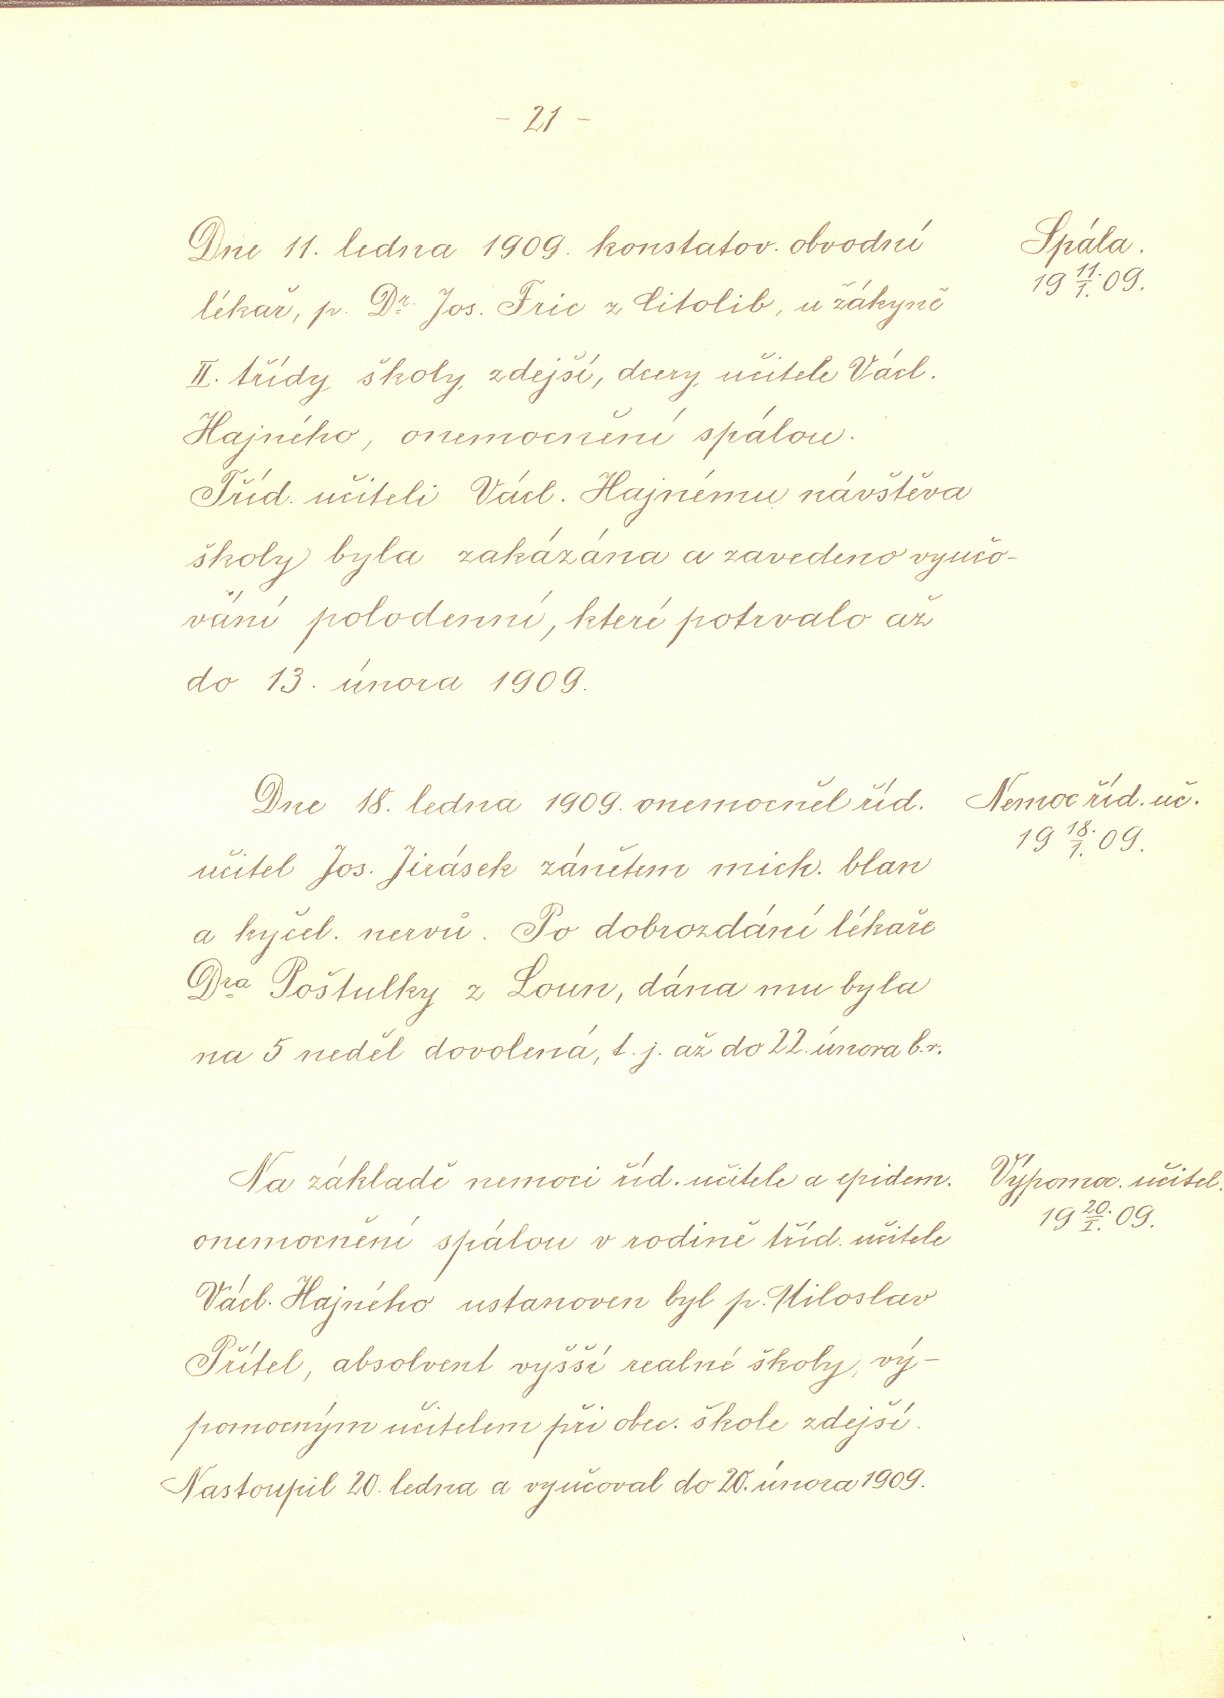 - 21 -
Dne 11. ledna 1909. konstatov. obvodní
lékař, p. Dr. Jos. Fric z Citolib, u žákyně
II. třídy školy zdejší, dcery učitele Václ.
Hajného, onemocnění spálou.
Tříd. učiteli Václ. Hajnému návštěva
školy byla zakázána a zavedeno vyučo-
vání polodenní, kteréi potrvalo až
do 13. února 1909.
Spála.
19 11./1. 09.
Dne 18. ledna 1909. onemocněl říd.
učitel Jos. Jirásek zánětem mich. blan
a kyčel. nervů. Po dobrozdání lékaře
Dra Poštulky z Loun, dána mu byla
na 5 neděl dovolená, t. j. až do 22. února b.r.
Nemoc říd. uč.
19 18./1. 09.
Na základě nemoci říd. učitele a epidem.
onemocnění spálou v rodině tříd. učitele
Václ. Hajného ustanoven byl p. Miloslav
Přítel, absolvent vyšší realné školy, vý-
pomocným učitelem při obec. škole zdejší.
Nastoupil 20. ledna a vyučoval do 20. února 1909.
Výpomoc. učitel.
19 20./I. 09.